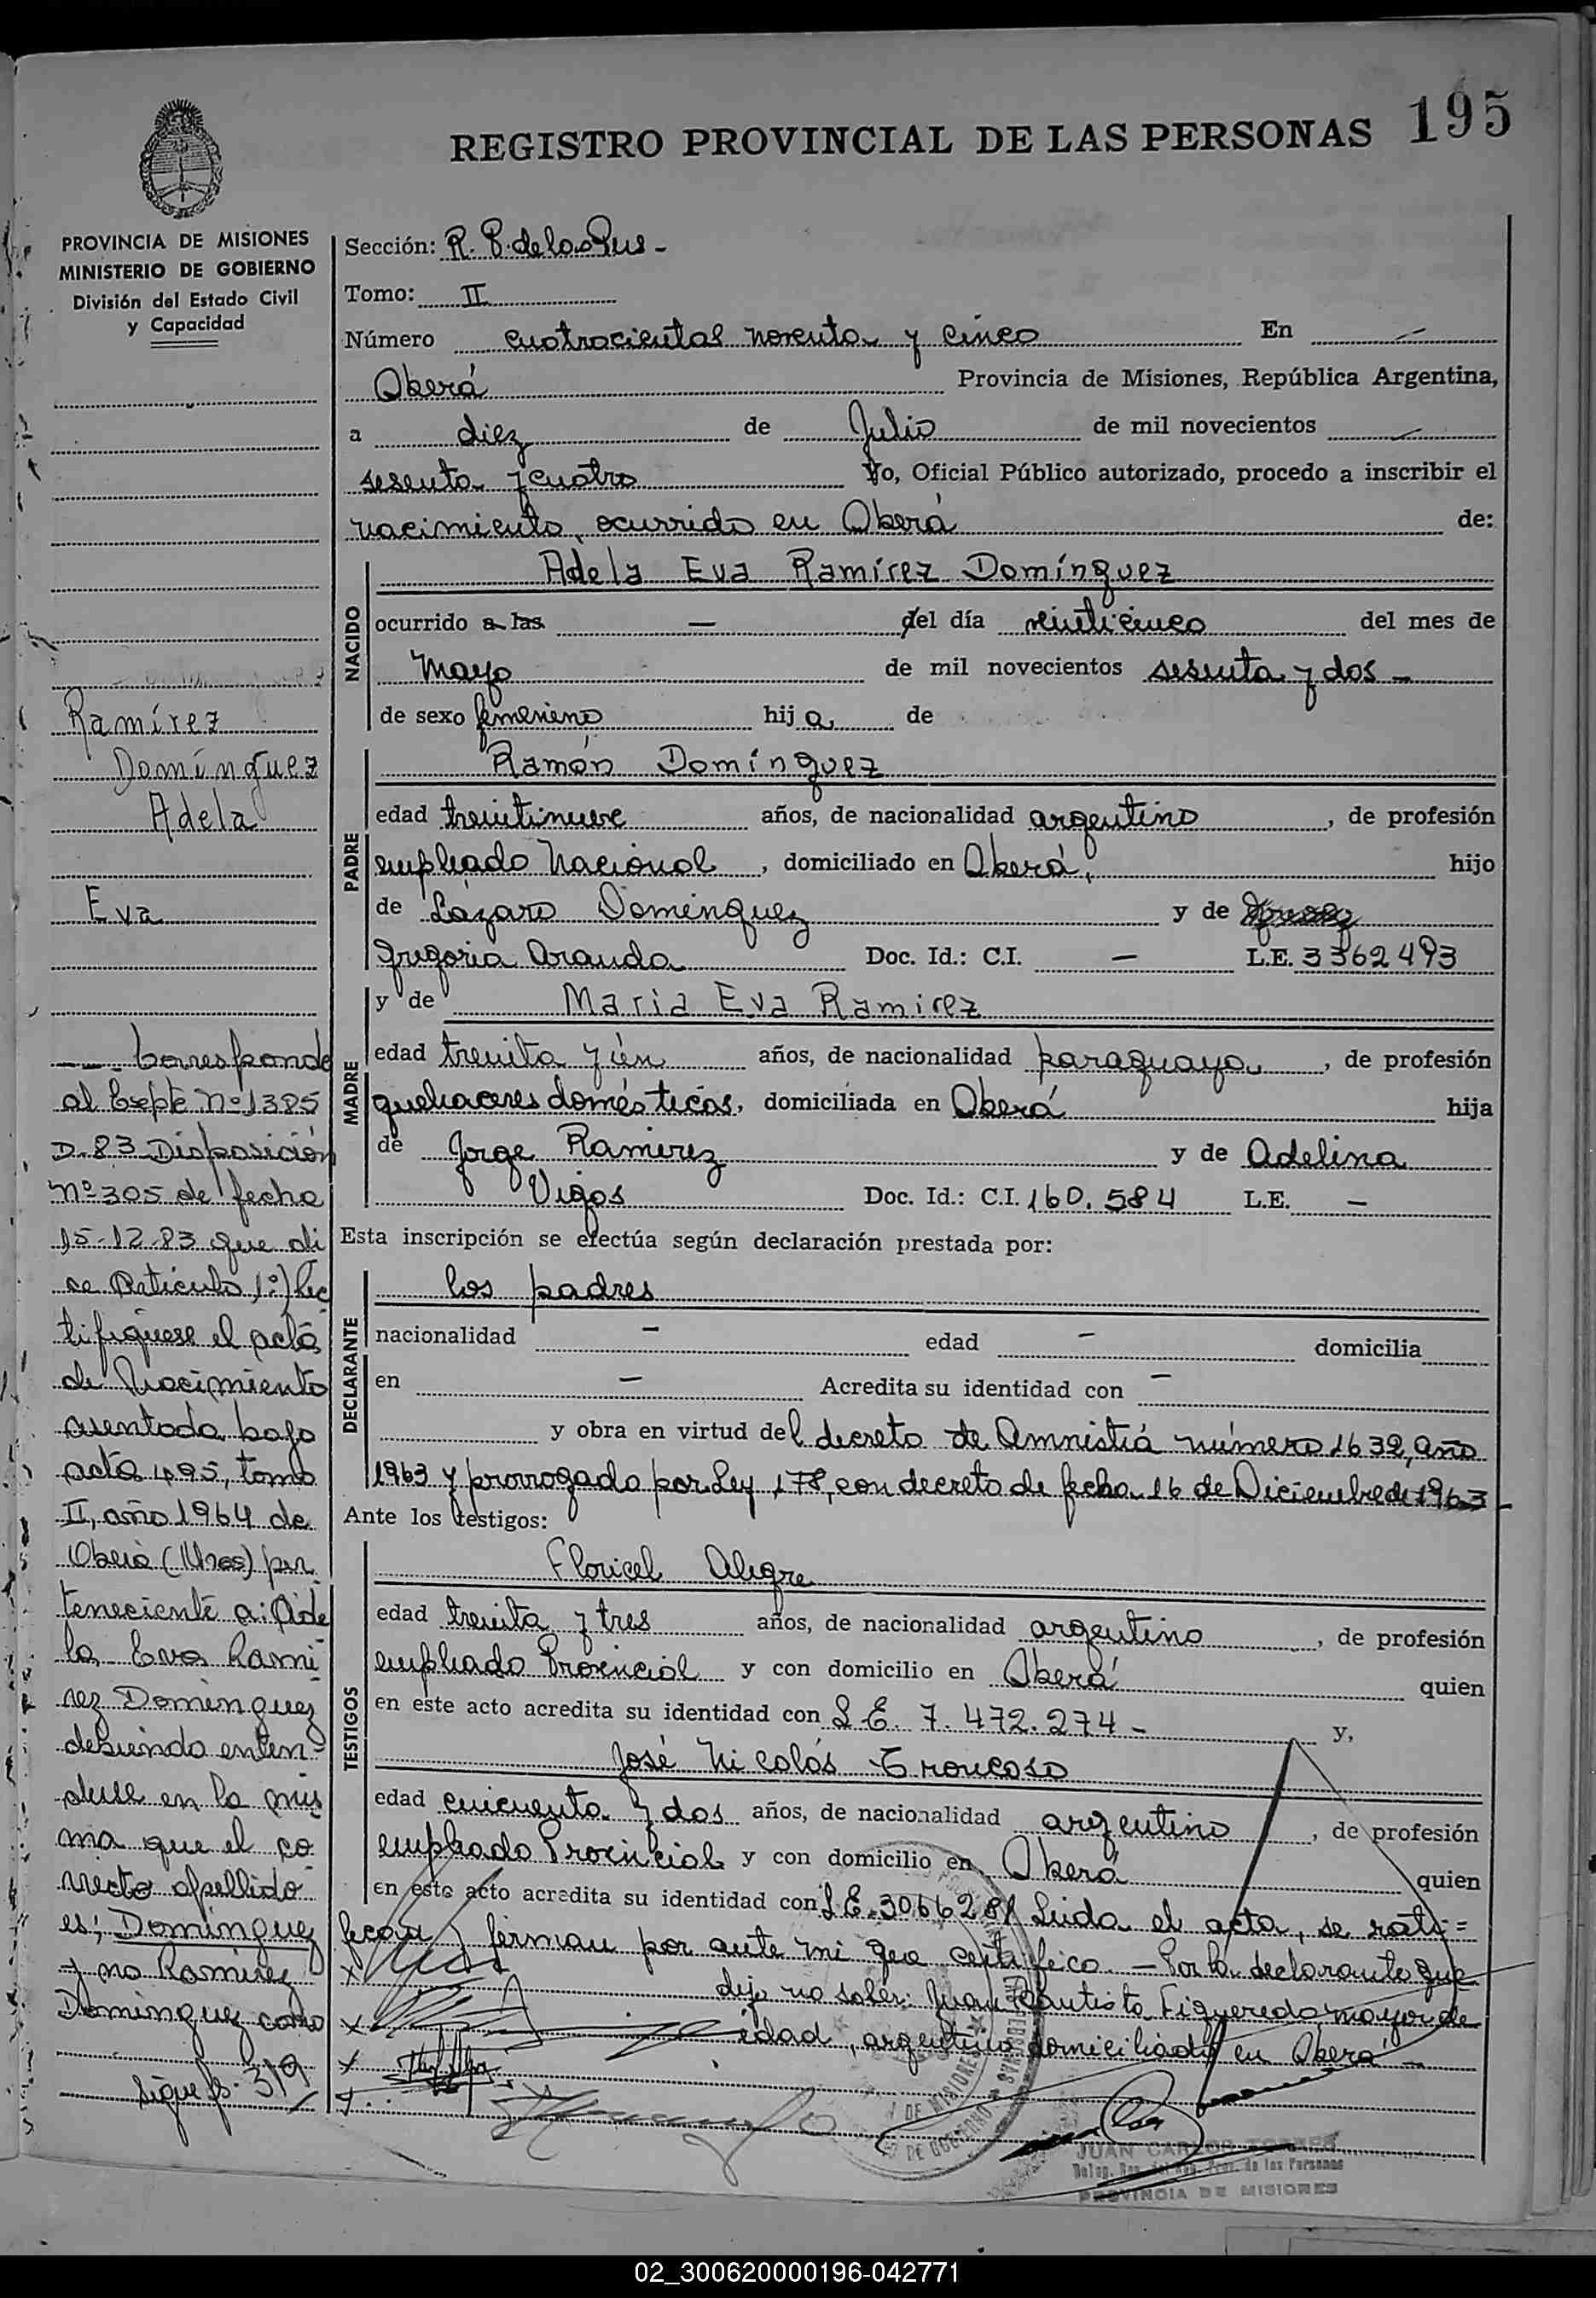 195
REGISTRO PROVINCIAL DE LAS PERSONAS
PROVINCIA DE MISIONES
MINISTERIO DE GOBIERNO
División del Estado Civil
y Capacidad
Ramírez
Domínguez
Adela
Eva
Corresponde
al Expte Nº 1385
D-83 Disposición
Nº 305 de fecha
15-12-83 que di
ce Artículo 1º) Rec
tifiquese el acta
de Nacimiento
asentada bajo
acta 495, tomo
II, año 1964 de
Oberá (Mnes) per
teneciente a: Ade
la Eva Rami
rez Dominguez
debiendo enten-
derse en la mis
ma que el co
rrecto apellido
es; Dominguez
y no Ramirez
Dominguez como
sigue fs. 319
Sección: R. P. de las Pers -
Tomo: II
Número cuatrocientos noventa y cinco En -
Oberá Provincia de Misiones, República Argentina,
a diez de Julio de mil novecientos -
sesenta y cuatro Yo, Oficial Público autorizado, procedo a inscribir el
nacimiento, ocurrido en Oberá de:
NACIDO
Adela Eva Ramírez Domínguez
ocurrido a las - del día veinticinco del mes de
Mayo de mil novecientos sesenta y dos -
de sexo femenino hij a de
PADRE
Ramón Domínguez
edad treintinueve años, de nacionalidad argentino, de profesión
empleado Nacional, domiciliado en Oberá, hijo
de Lázaro Dominguez y de
Gregoria Aranda Doc. Id.: C.I. - L.E. 3362493
MADRE
y de Maria Eva Ramirez
edad treinta y un años, de nacionalidad paraguaya, de profesión
quehaceres domésticos, domiciliada en Oberá hija
de Jorge Ramirez y de Adelina
Vigos Doc. Id.: C.I. 160.584 L.E. -
Esta inscripción se efectúa según declaración prestada por:
DECLARANTE
los padres
nacionalidad - edad - domicilia
en - Acredita su identidad con -
y obra en virtud del decreto de Amnistiá número 1632, año
1963 y prorrogado por Ley 178, con decreto de fecha 16 de Diciembre de 1963
Ante los testigos:
TESTIGOS
Floricel Alegre
edad treinta y tres años, de nacionalidad argentino, de profesión
empleado Provincial y con domicilio en Oberá quien
en este acto acredita su identidad con L.E. 7.472.274 - y,
José Nicolás Troncoso
edad cincuenta y dos años, de nacionalidad argentino, de profesión
empleado Provincial y con domicilio en Oberá quien
en este acto acredita su identidad con L.E. 3066281 Leida el acta, se rati=
fican y firman por ante mi que certifico. - Por la declarante que
dijo no saber: Juan Bautista Figueredo, mayor de
edad, argentino domiciliado en Oberá -
DE MISIONES
DE GOBIERNO
JUAN CARLOS TORRES
Prov. de las Personas
PROVINCIA DE MISIONES
02_300620000196-042771